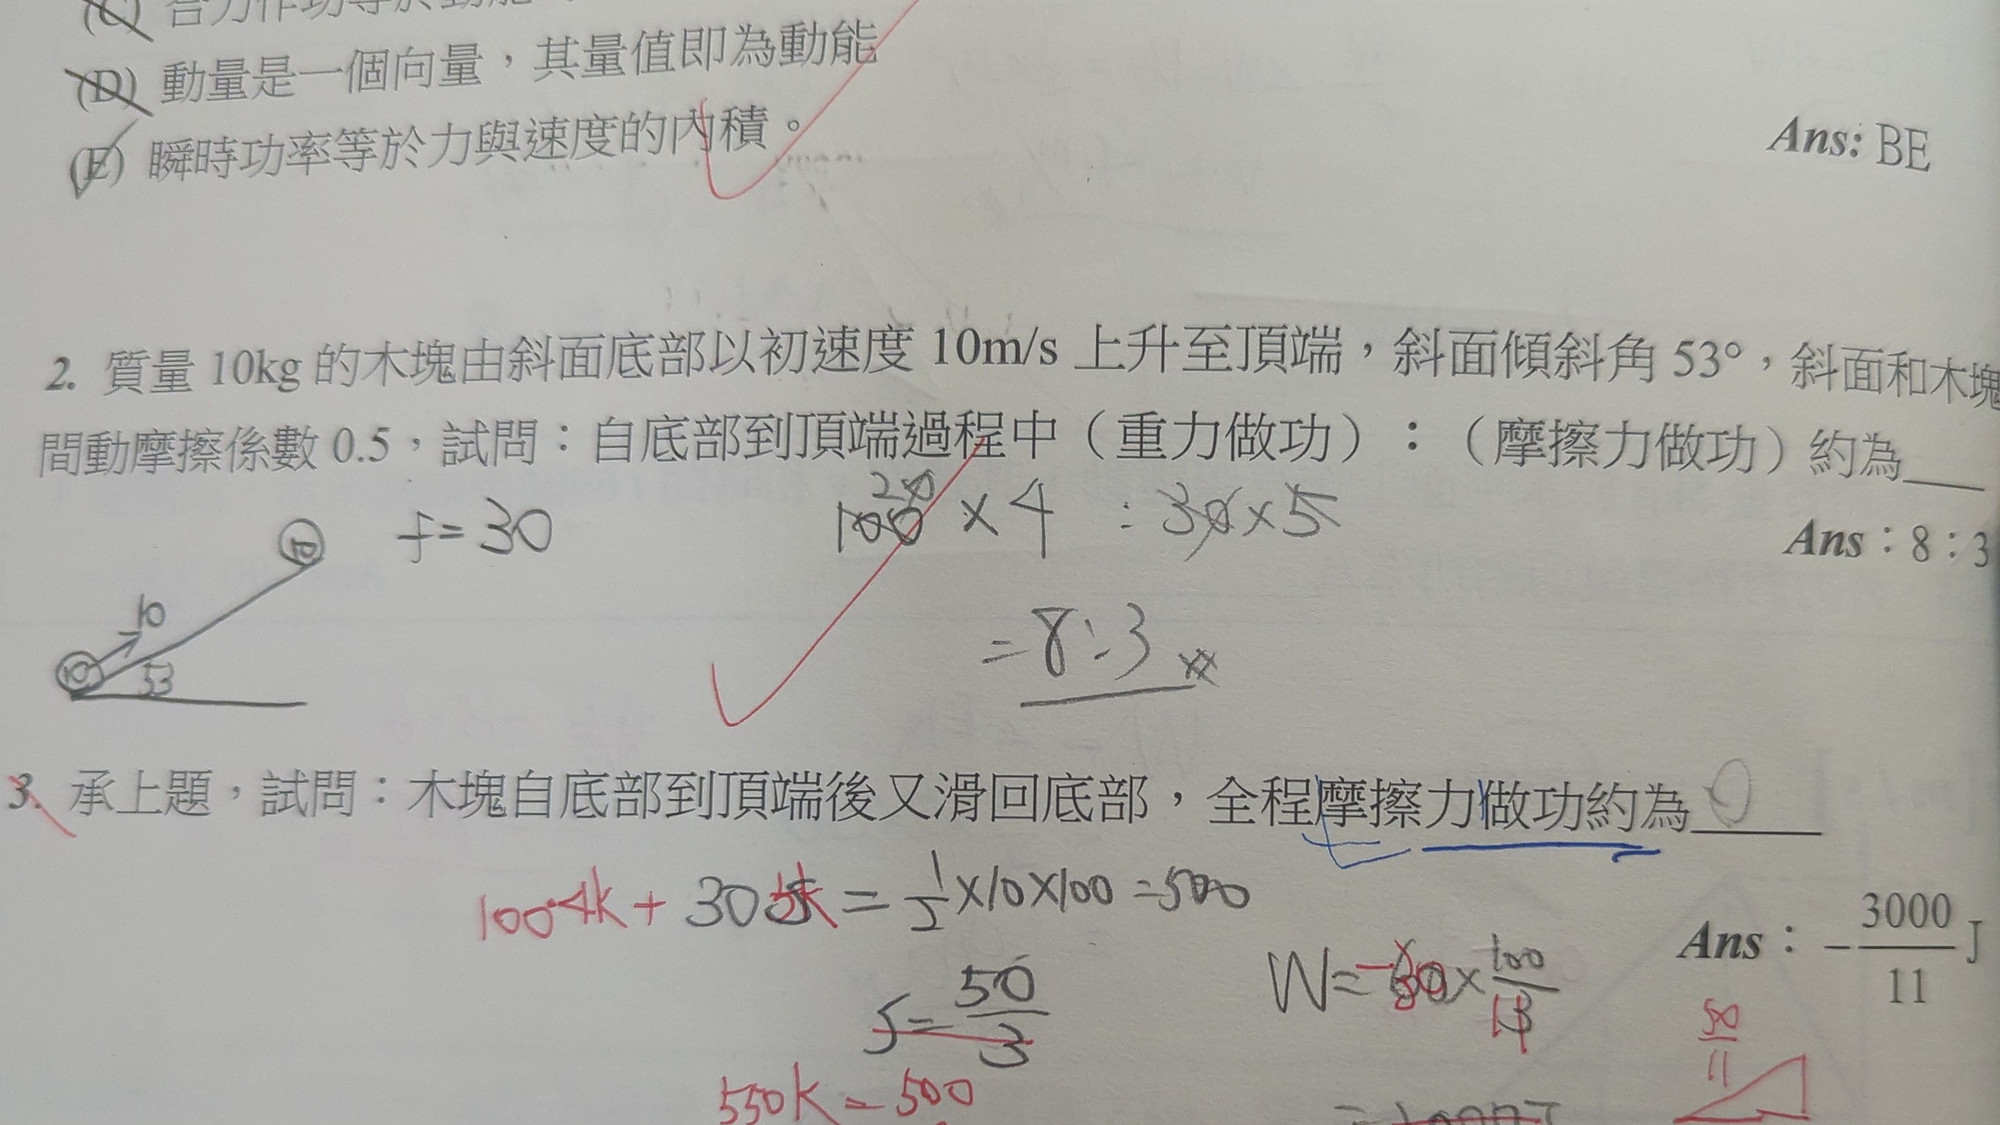 (C) 合力作功等於動能
(D) 動量是一個向量，其量值即為動能
(E) 瞬時功率等於力與速度的內積。
Ans: BE
2. 質量 10kg 的木塊由斜面底部以初速度 10m/s 上升至頂端，斜面傾斜角 53°，斜面和木塊
間動摩擦係數 0.5，試問：自底部到頂端過程中（重力做功）：（摩擦力做功）約為___
f=30
20
100 × 4 : 30×5
Ans：8：3
10
53
=8:3
3. 承上題，試問：木塊自底部到頂端後又滑回底部，全程摩擦力做功約為 0
100·4k + 30·5k = 1/2 ×10×100 =500
Ans：- 3000/11 J
S= 50/3
50/11
550k = 500